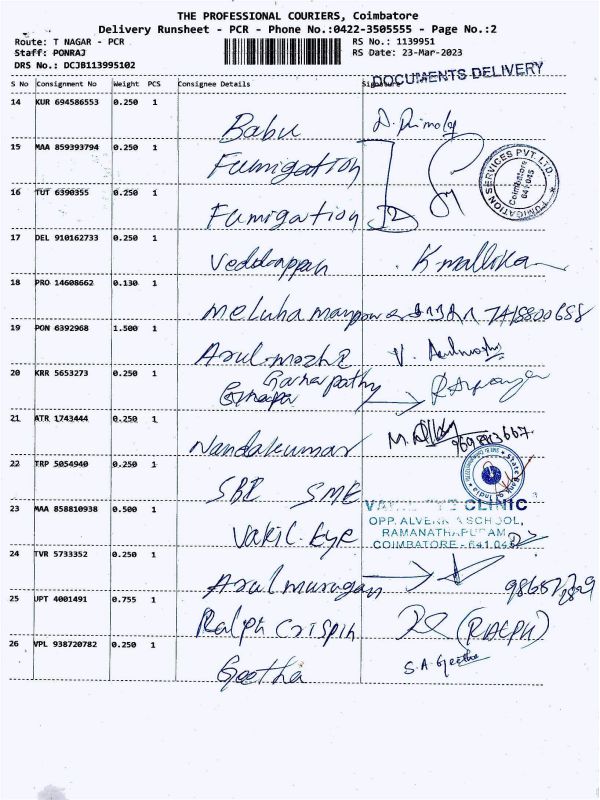 THE PROFESSIONAL COURIERS, Coimbatore
Delivery Runsheet - PCR - Phone No.:0422-3505555 - Page No.:2
Route: T NAGAR - PCR RS No.: 1139951
Staff: PONRAJ RS Date: 23-Mar-2023
DRS No.: DCJB113995102
DOCUMENTS DELIVERY
S No Consignment No Weight PCS Consignee Details
14 KUR 694586553 0.250 1
Babu
15 MAA 859393794 0.250 1
Fumigation
16 TUT 6390355 0.250 1
Fumigation
17 DEL 910162733 0.250 1
18 PRO 14608662 0.130 1
Meluha manpower
19 PON 6392968 1.500 1
Arulmozhi
20 KRR 5653273 0.250 1
Ganapathy
21 ATR 1743444 0.250 1
Nandakumar
22 TRP 5054940 0.250 1
SBI SME
23 MAA 858810938 0.500 1
Vakil Eye
CLINIC
OPP. ALVERNIA SCHOOL,
RAMANATHAPURAM,
COIMBATORE - 641 045
24 TVR 5733352 0.250 1
Arul murugan
25 UPT 4001491 0.755 1
Ralph Crispin (RALPH)
26 VPL 938720782 0.250 1
Geetha S.A. Geetha